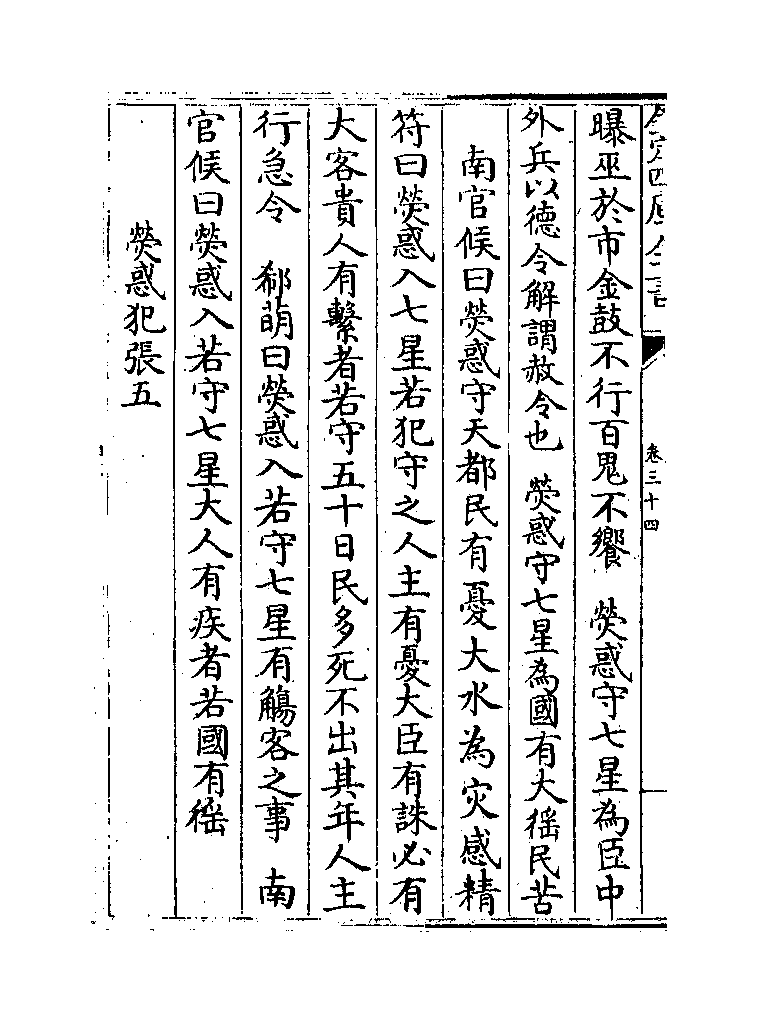 欽定四庫全書
卷三十四
曝巫於市金鼓不行百鬼不饗　熒惑守七星為臣中
外兵以德令解謂赦令也　熒惑守七星為國有大徭民苦
南官候曰熒惑守天都民有憂大水為灾感精
符曰熒惑入七星若犯守之人主有憂大臣有誅必有
大客貴人有繫者若守五十日民多死不出其年人主
行急令　郗萌曰熒惑入若守七星有觴客之事　南
官候曰熒惑入若守七星大人有疾者若國有徭
熒惑犯張五